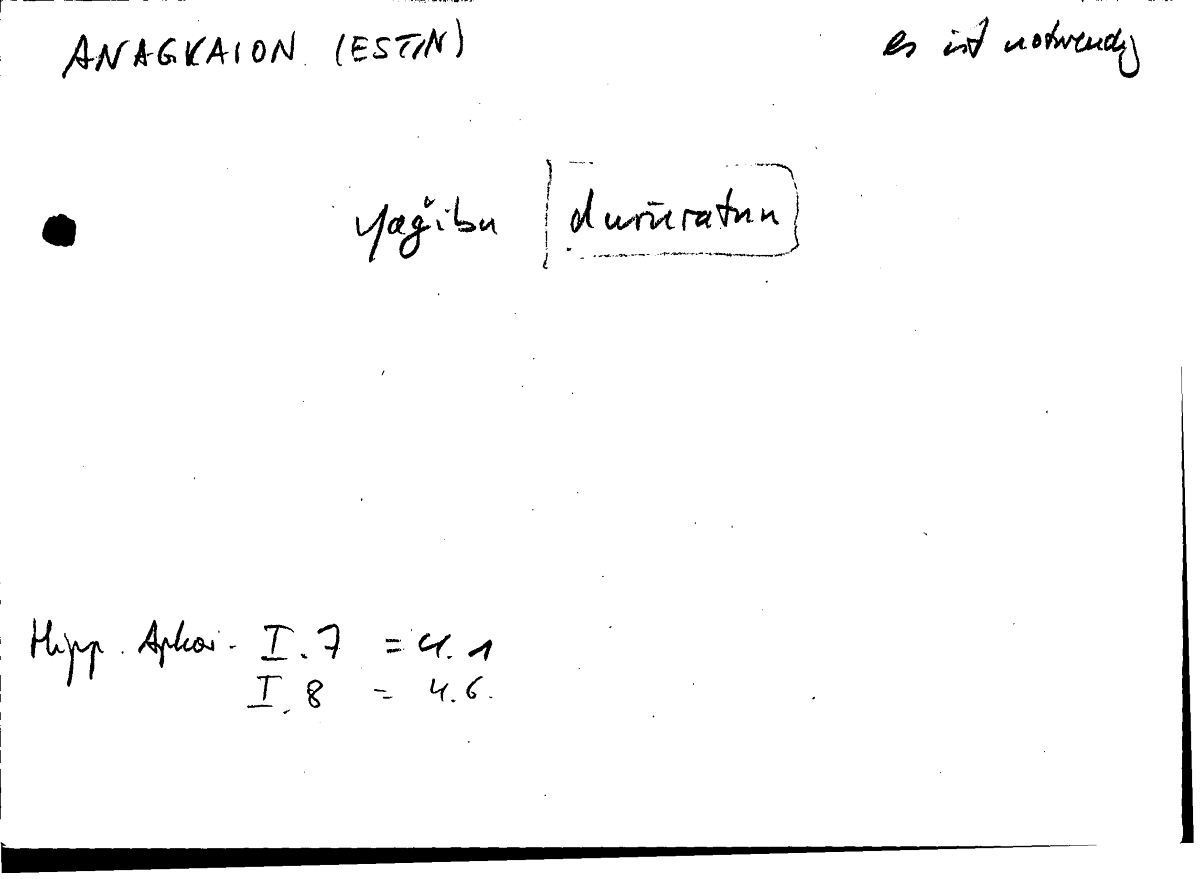 ANAGKAION (ESTIN) es ist notwendig
yağibu | ḍurūratun
Hipp. Aphor. I.7 = 4.1
I.8 = 4.6.